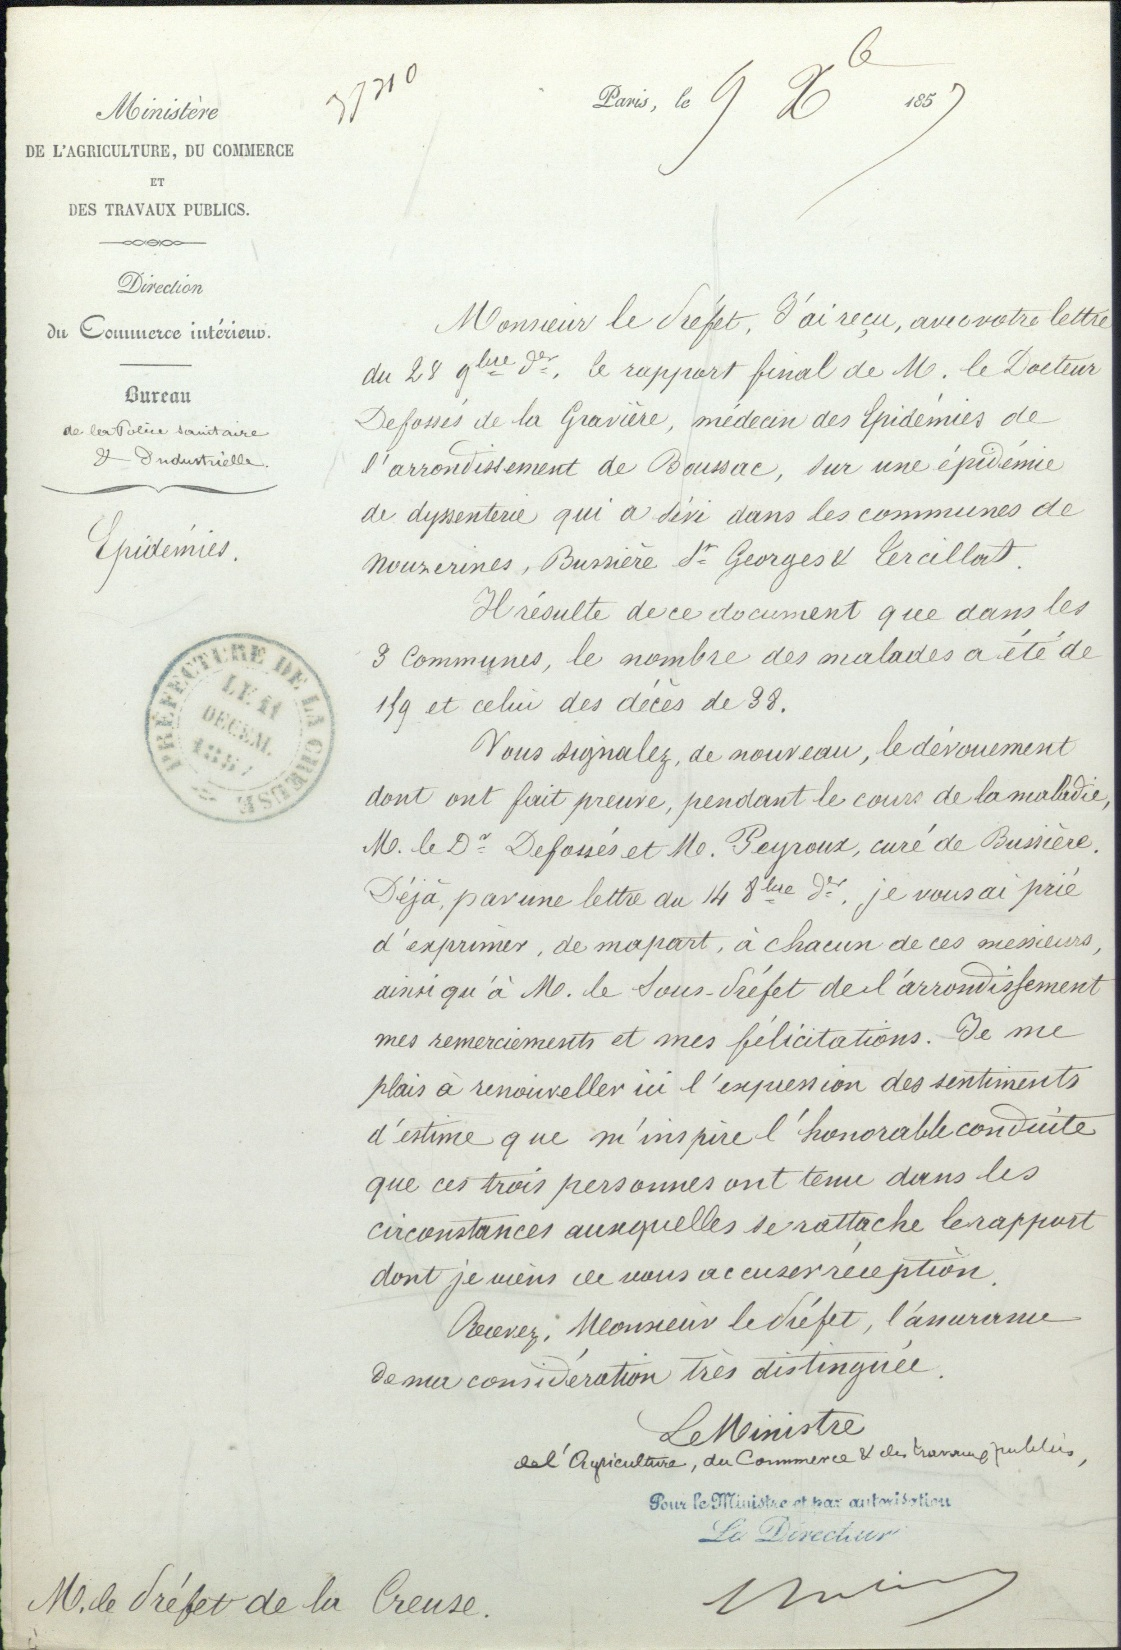 Ministère
DE L'AGRICULTURE, DU COMMERCE
ET
DES TRAVAUX PUBLICS.
Direction
du Commerce intérieur.
Bureau
de la Police sanitaire
& Industrielle.
Epidémies.
PRÉFECTURE DE LA CREUSE
LE 11
DECEM.
1857
Paris, le 9 Xbre 1857
Monsieur le Préfet, J'ai reçu, avec votre lettre
du 28 9bre der, le rapport final de M. le Docteur
Defossés de la Gravière, médecin des Epidémies de
l'arrondissement de Boussac, sur une épidémie
de dyssenterie qui a sévi dans les communes de
Nouzerines, Bussière St Georges & Tercillat.
Il résulte de ce document que dans les
3 communes, le nombre des malades a été de
159 et celui des décès de 38.
Vous signalez, de nouveau, le dévouement
dont ont fait preuve, pendant le cours de la maladie,
M. le Dr Defossés et M. Peyroux, curé de Bussière.
Déjà, par une lettre du 14 8bre der, je vous ai prié
d'exprimer, de ma part, à chacun de ces messieurs,
ainsi qu'à M. le Sous-Préfet de l'arrondissement
mes remerciements et mes félicitations. Je me
plais à renouveller ici l'expression des sentiments
d'estime que m'inspire l'honorable conduite
que ces trois personnes ont tenu dans les
circonstances auxquelles se rattache le rapport
dont je viens de vous accuser réception.
Recevez, Monsieur le Préfet, l'assurance
de ma considération très distinguée.
Le Ministre
de l'Agriculture, du Commerce & des travaux publics,
Pour le Ministre et par autorisation
Le Directeur
M. le Préfet de la Creuse.